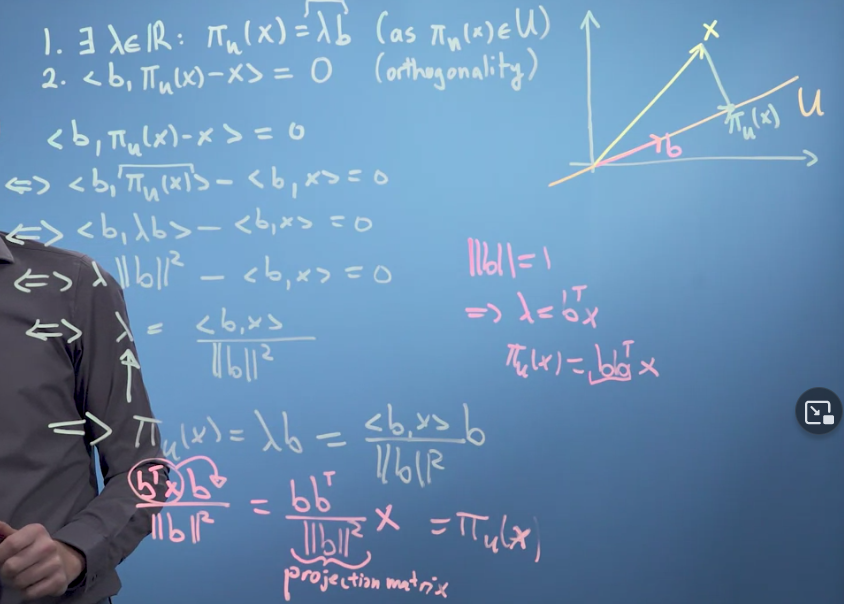 1. ∃ λ∈ℝ: π_u(x) = λb (as π_u(x)∈U)
2. <b, π_u(x)-x> = 0 (orthogonality)
<b, π_u(x)-x> = 0
⇔ <b, π_u(x)> - <b,x> = 0
⇔ <b, λb> - <b,x> = 0
⇔ λ ||b||² - <b,x> = 0
⇔ λ = <b,x> / ||b||²
⇒ π_u(x) = λb = <b,x> / ||b||² b
bᵀx b / ||b||² = bbᵀ / ||b||² x = π_u(x)
projection matrix
x
U
π_u(x)
b
||b|| = 1
⇒ λ = bᵀx
π_u(x) = bbᵀ x